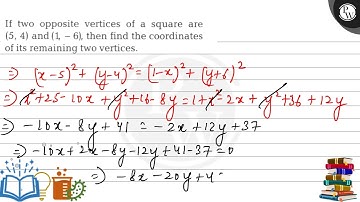 If two opposite vertices of a square are
(5, 4) and (1, − 6), then find the coordinates
of its remaining two vertices.
⇒ (x-5)² + (y-4)² = (1-x)² + (y+6)²
⇒ x² + 25 - 10x + y² + 16 - 8y = 1 + x² - 2x + y² + 36 + 12y
⇒ -10x - 8y + 41 = -2x + 12y + 37
⇒ -10x + 2x - 8y - 12y + 41 - 37 = 0
⇒ -8x - 20y + 4